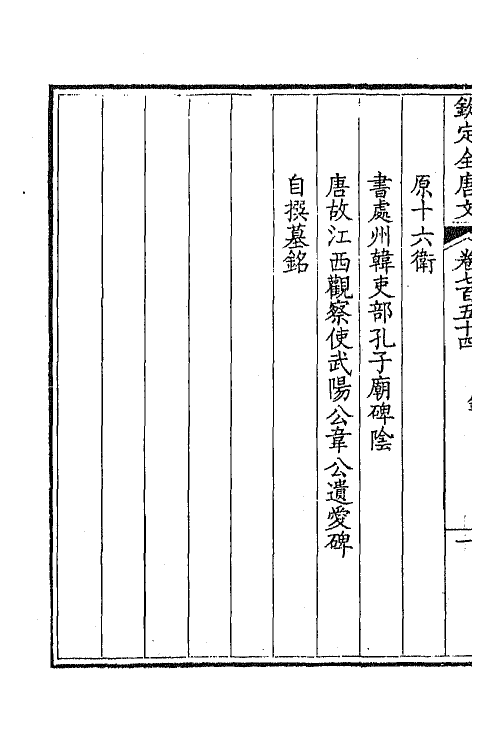 欽定全唐文 卷七百五十四 一
原十六衛
書處州韓吏部孔子廟碑陰
唐故江西觀察使武陽公韋公遺愛碑
自撰墓銘